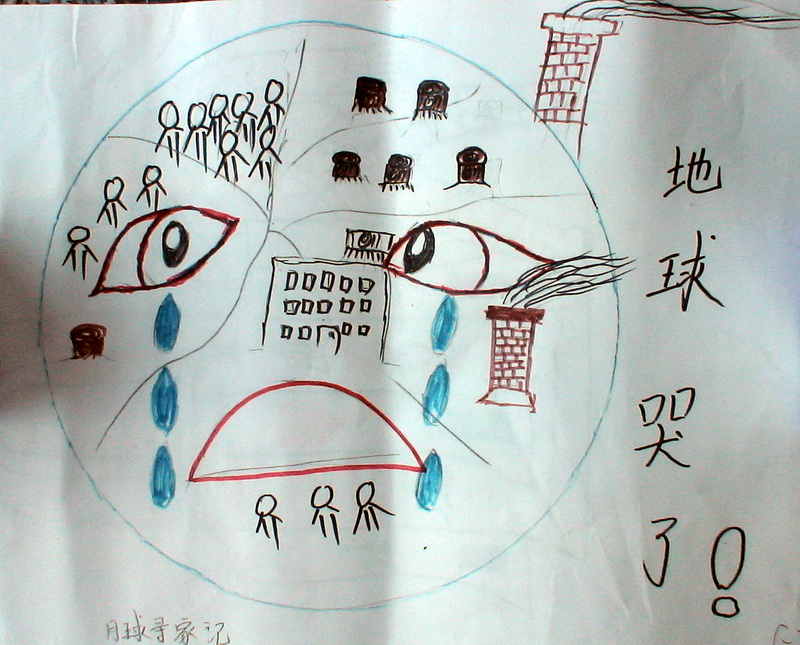 地球哭了!
月球寻家记